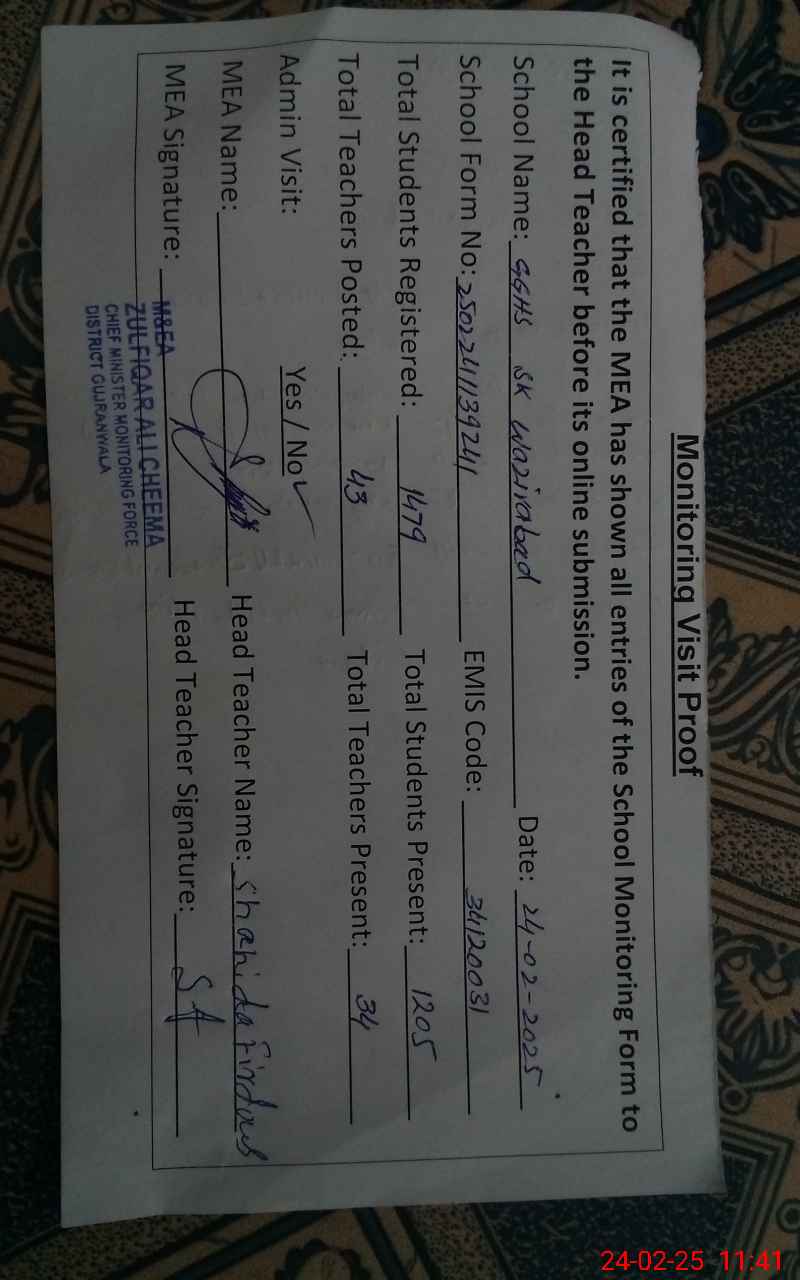 Monitoring Visit Proof
It is certified that the MEA has shown all entries of the School Monitoring Form to
the Head Teacher before its online submission.
School Name: GGHS SK Wazirabad Date: 24-02-2025
School Form No: 25022411139241 EMIS Code: 34120031
Total Students Registered: 1479 Total Students Present: 1205
Total Teachers Posted: 43 Total Teachers Present: 34
Admin Visit: Yes / No ✓
MEA Name: Head Teacher Name: Shahida Firdous
MEA Signature: Head Teacher Signature: SA
M&EA
ZULFIQAR ALI CHEEMA
CHIEF MINISTER MONITORING FORCE
DISTRICT GUJRANWALA
24-02-25 11:41